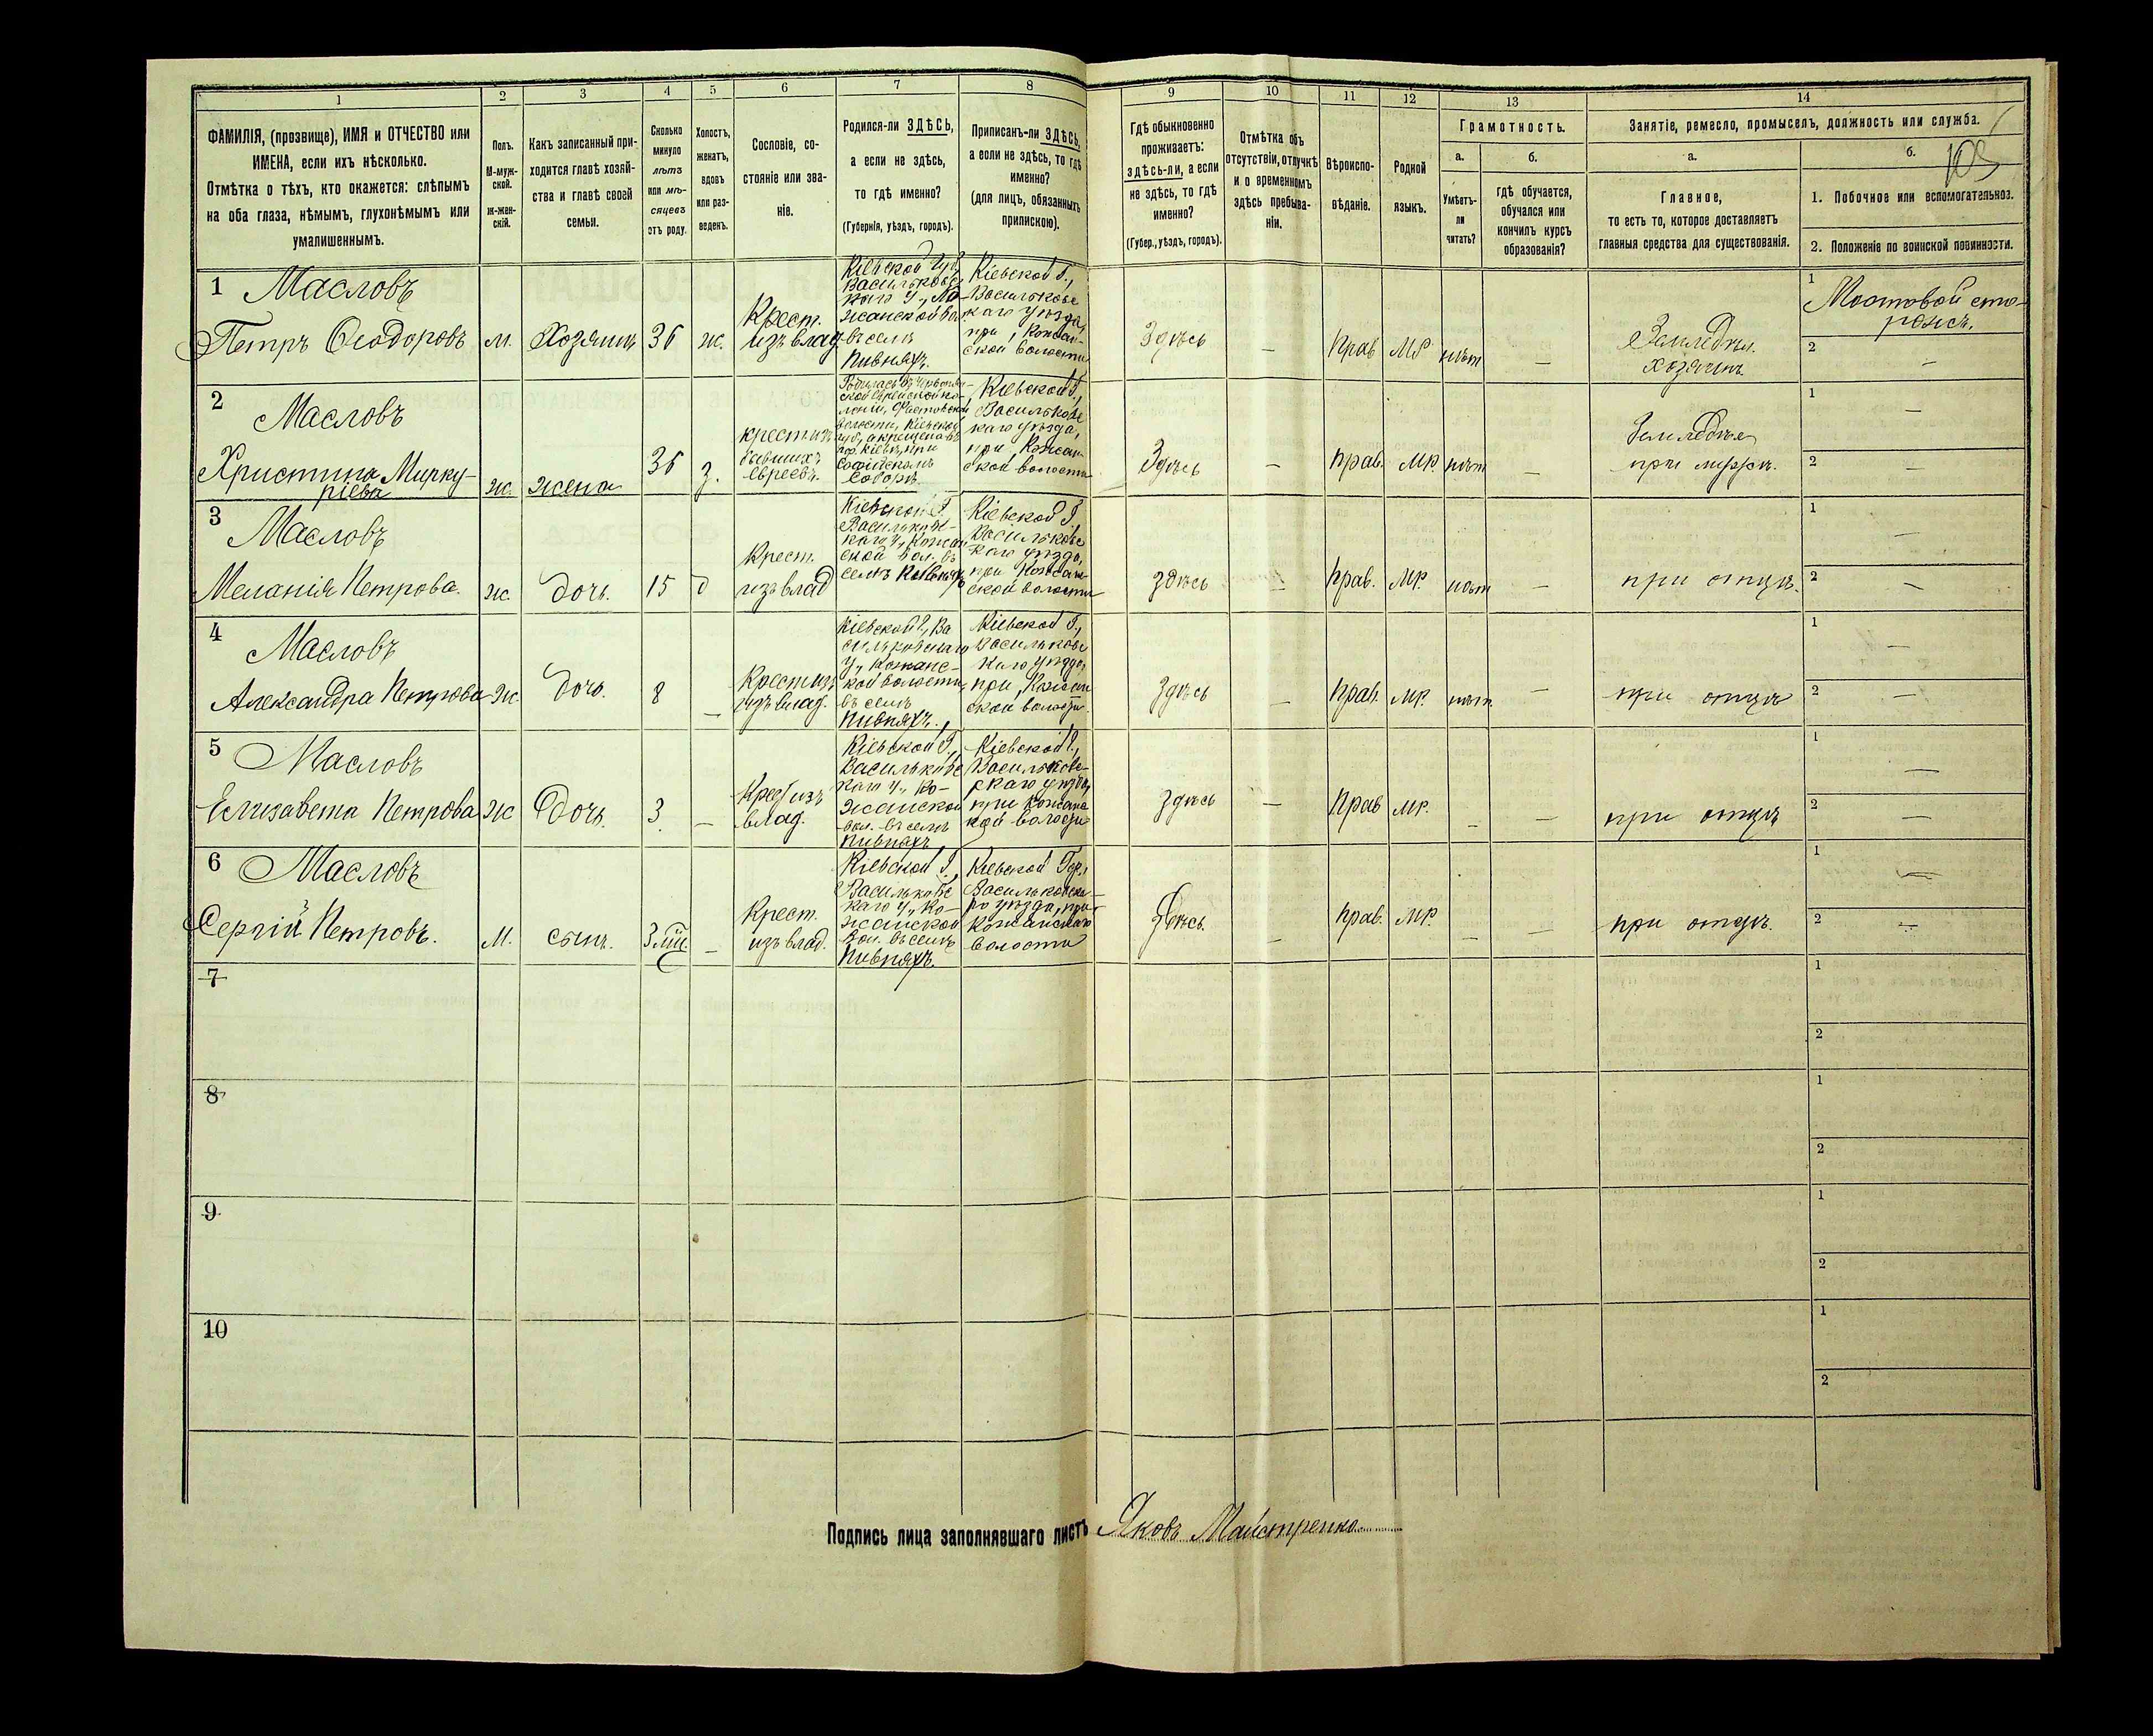 1
2
3
4
5
6
7
8
9
10
11
12
13
14
ФАМИЛІЯ, (прозвище), ИМЯ и ОТЧЕСТВО или
ИМЕНА, если ихъ нѣсколько.
Отмѣтка о тѣхъ, кто окажется: слѣпымъ
на оба глаза, нѣмымъ, глухонѣмымъ или
умалишеннымъ.
Полъ.
М-муж-
ской.
Ж-жен-
скій.
Какъ записанный при-
ходится главѣ хозяй-
ства и главѣ своей
семьи.
Сколько
минуло
лѣтъ
или мѣ-
сяцевъ
отъ роду.
Холостъ,
женатъ,
вдовъ
или раз-
веденъ.
Сословіе, со-
стояніе или зва-
ніе.
Родился-ли ЗДѢСЬ,
а если не здѣсь,
то гдѣ именно?
(Губернія, уѣздъ, городъ).
Приписанъ-ли ЗДѢСЬ,
а если не здѣсь, то гдѣ
именно?
(для лицъ, обязанныхъ
припискою).
Гдѣ обыкновенно
проживаетъ:
здѣсь-ли, а если
не здѣсь, то гдѣ
именно?
(Губер., уѣздъ, городъ).
Отмѣтка объ
отсутствіи, отлучкѣ
и о временномъ
здѣсь пребыва-
ніи.
Вѣроиспо-
вѣданіе.
Родной
языкъ.
Грамотность.
а.
б.
Умѣетъ-
ли
читать?
гдѣ обучается,
обучался или
кончилъ курсъ
образованія?
Занятіе, ремесло, промыселъ, должность или служба.
а.
б.
Главное,
то есть то, которое доставляетъ
главныя средства для существованія.
1. Побочное или вспомогательное.
2. Положеніе по воинской повинности.
1 Масловъ
Петръ Ѳеодоровъ
м.
Хозяинъ
36
ж.
Крест.
изъ влад.
Кіевской Губ.,
Васильковс
каго у., Ко-
жанской вол.
въ селѣ
Пивняхъ.
Кіевской Г.,
Васильковс
каго уѣзда,
при Кожан-
ской волости
Здѣсь
—
Прав
МР.
нѣт
—
Земледѣл.
хозяинъ
1
Мостовой сто-
рожъ.
2
—
2 Масловъ
Христина Мирку-
ріева
ж.
жена
36
з.
крест. изъ
бывшихъ
евреевъ.
Кіевской Г.,
Васильковс
каго уѣзда,
при Кожан-
ской волости
Здѣсь
—
прав.
МР.
нѣт
—
Земледѣліе
при мужѣ.
1
—
2
—
3 Масловъ
Меланія Петрова.
ж
дочь.
15
д
Крест.
изъ влад
Кіевской Г.
Васильковс-
каго у., Кожан
ской вол. въ
селѣ Пивняхъ
Кіевской Г.
Васильковс
каго уѣзда,
при Кожан-
ской волости
здѣсь
—
Прав.
МР.
нѣт
—
при отцѣ.
1
—
2
—
4 Масловъ
Александра Петрова
ж.
дочь.
8
—
Крест. изъ
влад.
Кіевской Г., Ва
сильковскаго
у., Кожанс-
кой волости,
въ селѣ
Пивняхъ.
Кіевской Г.,
Васильковс
каго уѣзда,
при Кожан
ской волости.
здѣсь
—
прав.
МР.
нѣт.
—
при отцѣ
1
—
2
—
5 Масловъ
Елизавета Петрова
ж
дочь.
3
—
Крест изъ
влад.
Кіевской Г.,
Васильковс
каго у., Ко-
жанской
вол. въ селѣ
Пивняхъ
Кіевской Г.,
Васильковс-
каго уѣзда,
при Кожанс
кой волости
здѣсь
—
Прав
МР.
—
—
при отцѣ
1
—
2
—
6 Масловъ
Сергій Петровъ.
М.
сынъ.
3 мѣс.
—
Крест.
изъ влад.
Кіевской Г.,
Васильковс
каго у., Ко-
жанской
вол. въ селѣ
Пивняхъ.
Кіевской Губ.,
Васильковска-
го уѣзда, при
Кожанской
волости
здѣсь.
—
Прав.
МР.
—
—
при отцѣ.
1
—
2
—
7
1
2
8
1
2
9
1
2
10
1
2
Подпись лица заполнявшаго листъ Яковъ Майстренко